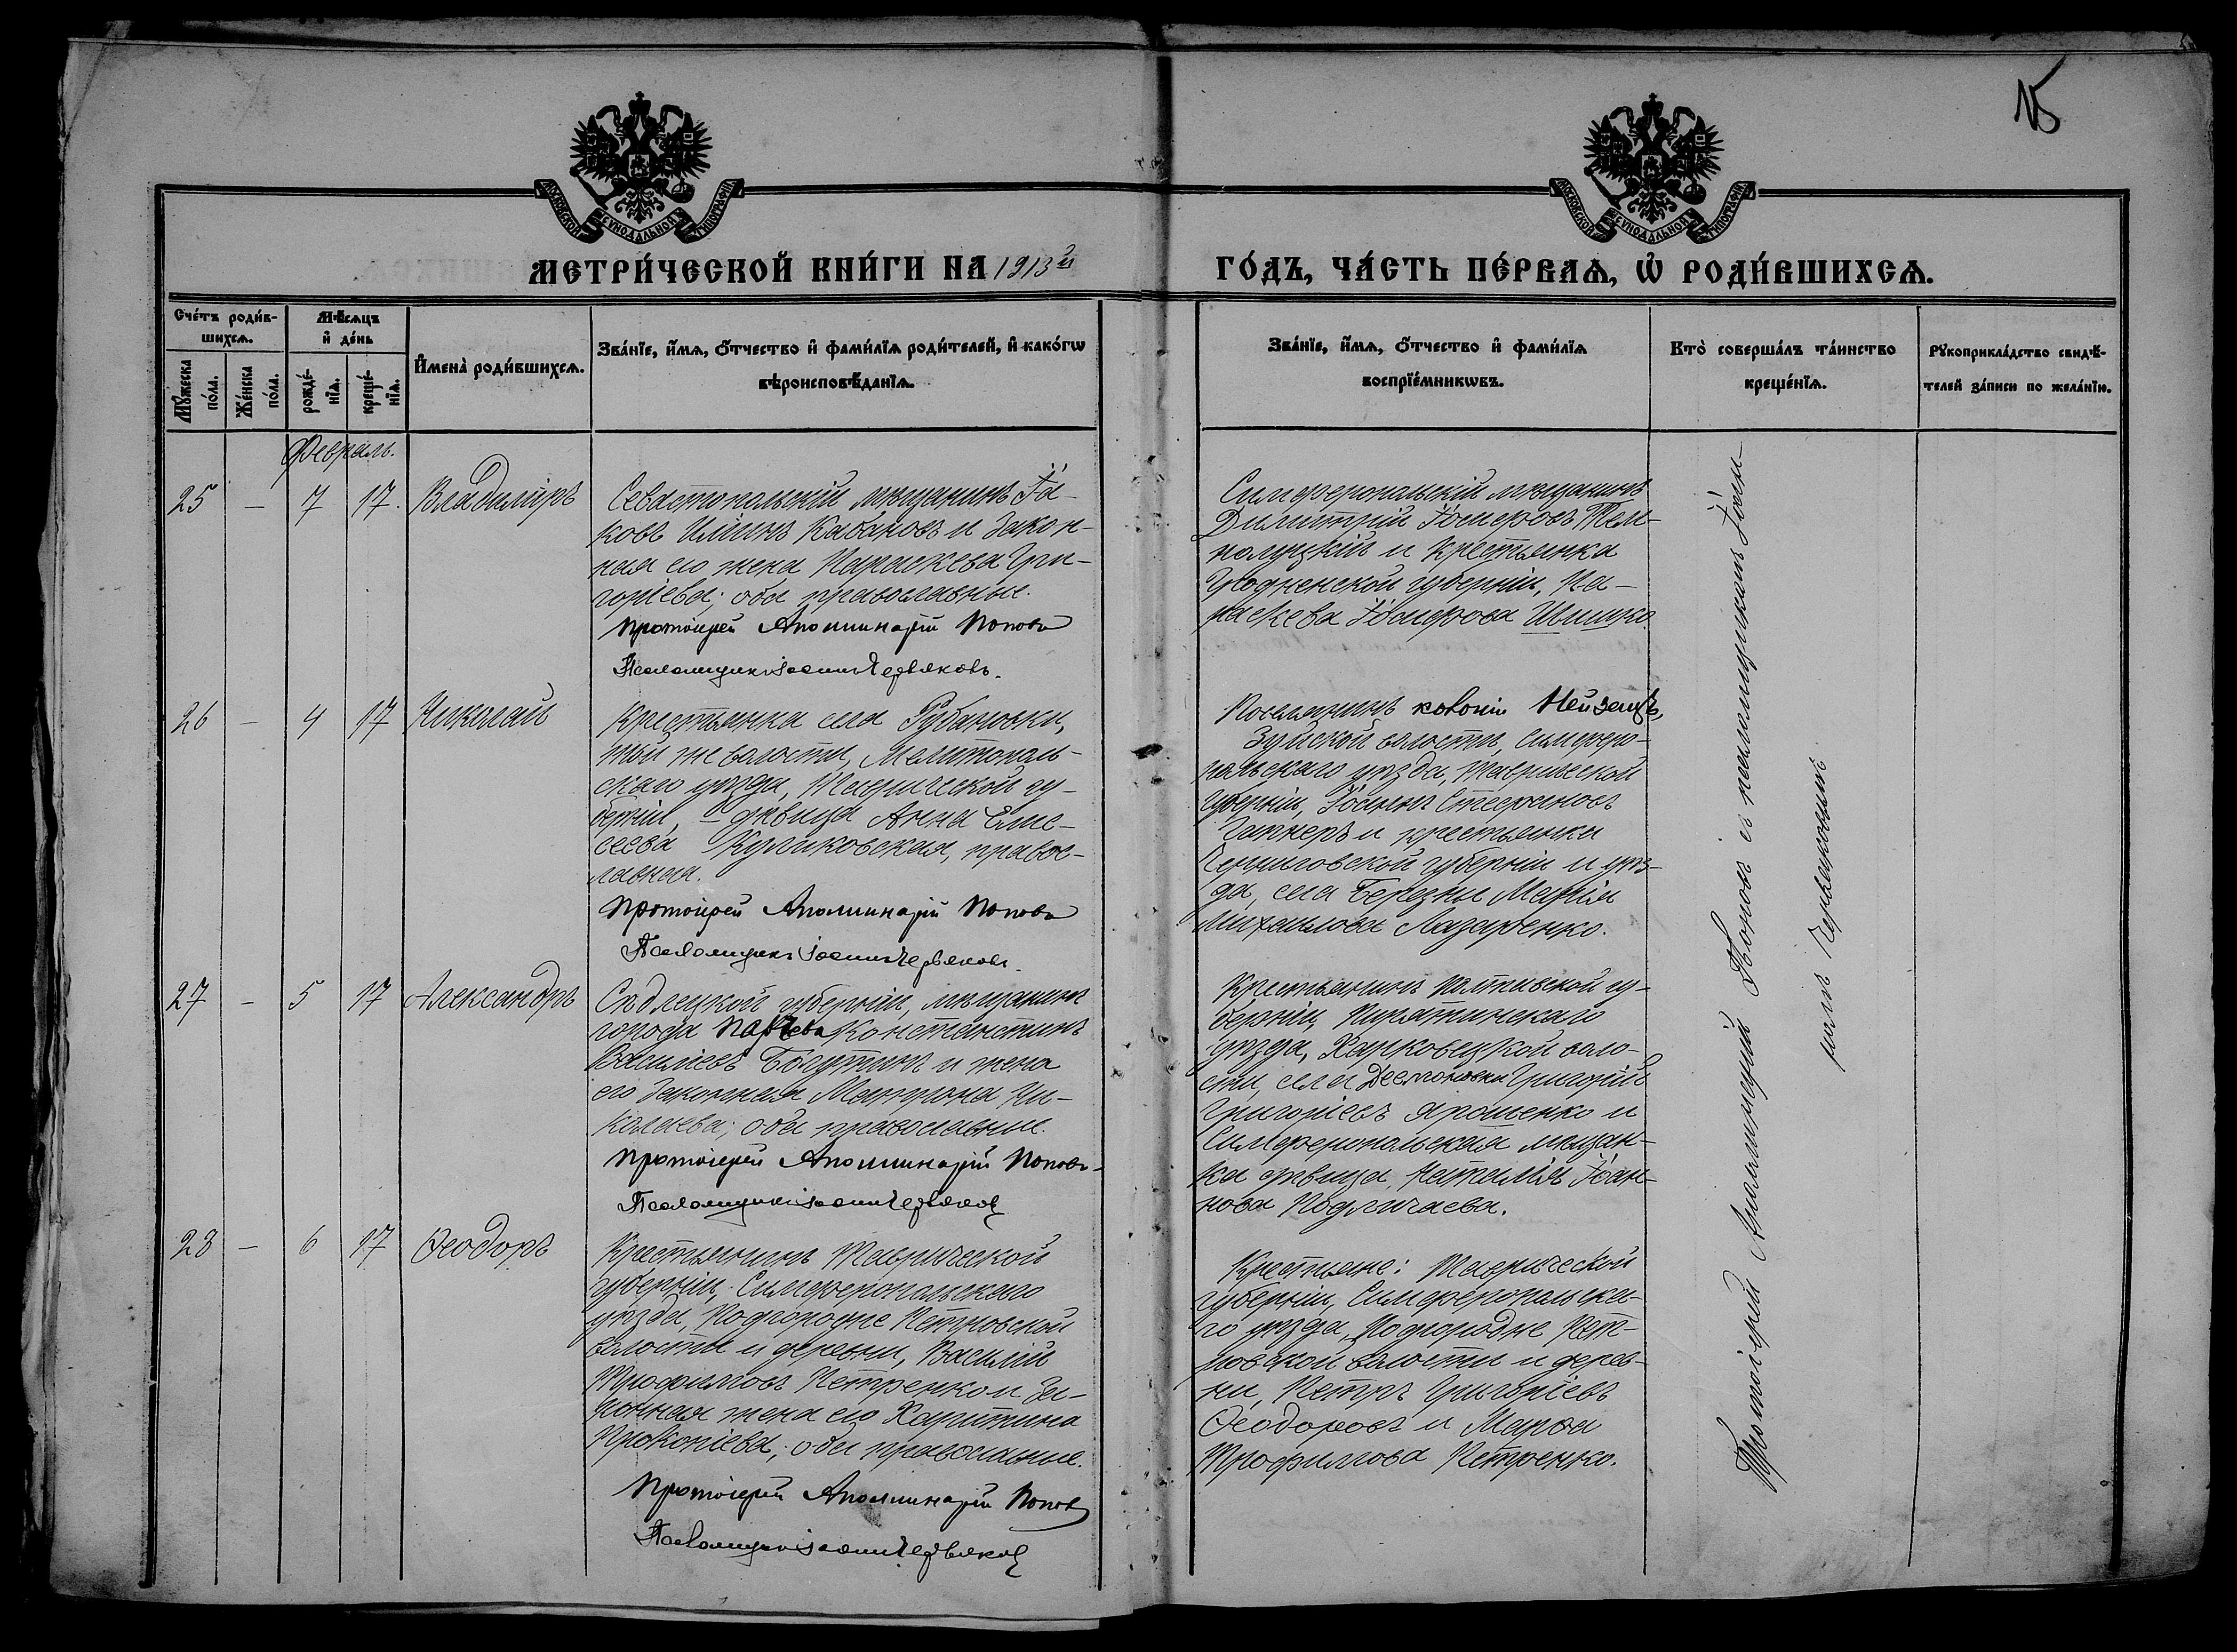 15
МОСКОВСКОЙ СѴНОДАЛЬНОЙ ТИПОГРАФІИ
МОСКОВСКОЙ СѴНОДАЛЬНОЙ ТИПОГРАФІИ
МЕТРИ́ЧЕСКОЙ КНИ́ГИ НА 1913й
ГО́ДЪ, ЧА́СТЬ ПЕ́РВАѦ, Ѡ҆ РОДИ́ВШИХСѦ.
Сче́тъ роди́в-
шихсѧ.
Мѣ́сѧцъ
и҆ де́нь
Мꙋ́жеска
по́ла.
Же́нска
по́ла.
рожде́-
нїѧ.
креще́-
нїѧ.
И҆мена̀ роди́вшихсѧ.
Зва́нїе, и҆́мѧ, о҆́тчество и҆ фами́лїѧ роди́телей, и҆ како́гѡ
вѣроисповѣ́данїѧ.
Зва́нїе, и҆́мѧ, о҆́тчество и҆ фами́лїѧ
воспрїе́мникѡвъ.
Кто̀ соверша́лъ та́инство
креще́нїѧ.
Рꙋкоприкла́дство свидѣ́-
телей за́писи по жела́нїю.
Февраль.
25 – 7 17. Владиміръ
Севастопольскій мѣщанинъ Іа-
ковъ Ильинъ Кабаковъ и закон-
ная его жена Параскева Гри-
горіева; оба православные.
Протоіерей Аполлинарій Поповъ
Псаломщикъ Іоаннъ Червяковъ.
Симферопольскій мѣщанинъ
Димитрій Іосифовъ
и крестьянка
Гродненской губерніи, Па-
раскева Іосифова
26 – 4 17 Николай
Крестьянка села Рубановки,
той же волости, Мелитополь-
скаго уѣзда, Таврической гу-
берніи, – дѣвица Анна Елис-
сеева Куликовская, правос-
лавная.
Протоіерей Аполлинарій Поповъ
Псаломщикъ Іоаннъ Червяковъ.
Поселянинъ колоніи Нейзацъ,
Зуйской волости, Симферо-
польскаго уѣзда, Таврической
губерніи, Іоаннъ Стефановъ
и крестьянка
Черниговской губерніи и уѣз-
да, села Березны Марія
Михаилова Лазаренко.
27 – 5 17 Александръ
Сѣдлецкой губерніи, мѣщанинъ
города Парчева Константинъ
Василіевъ и жена
его законная Матрона Ни-
колаева; оба православные.
Протоіерей Аполлинарій Поповъ.
Псаломщикъ Іоаннъ Червяковъ
Крестьянинъ Полтавской гу-
берніи, Пирятинскаго
уѣзда, Харковецкой воло-
сти, села Григорій
Григоріевъ Ярошенко и
Симферопольская мѣщан-
ка дѣвица, Наталія Іоан-
нова Подличаева.
28 – 6 17 Ѳеодоръ
Крестьянинъ Таврической
губерніи, Симферопольскаго
уѣзда, Подгородне Петровской
волости и деревни, Василій
Трофимовъ Петренко и за-
конная жена его Харитина
Прокопіева; оба православные.
Протоіерей Аполлинарій Поповъ
Псаломщикъ Іоаннъ Червяковъ
Крестьяне: Таврической
губерніи, Симферопольска-
го уѣзда, Подгородне Пет-
ровской волости и дерев-
ни, Петръ Григоріевъ
Ѳеодоровъ и Марѳа
Трофимова Петренко.
Протоіерей Аполлинарій Поповъ съ псаломщикомъ Іоан-
номъ Червяковымъ